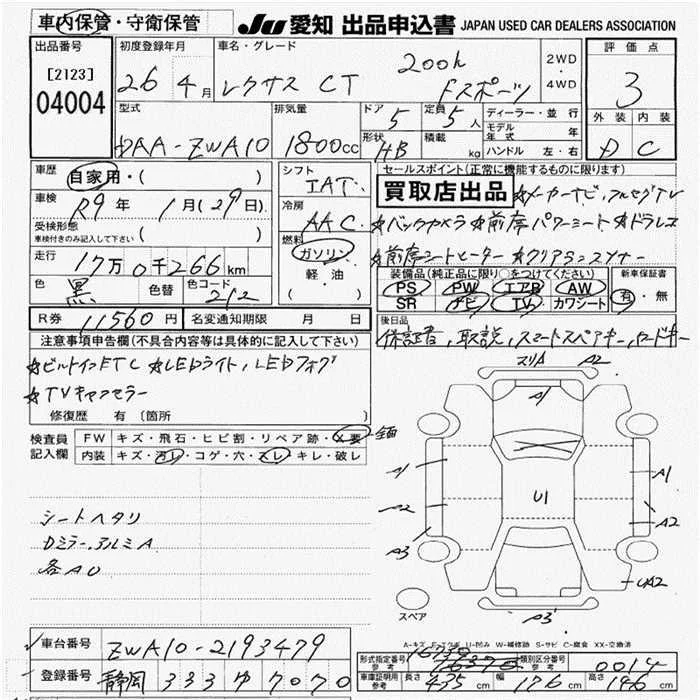 車内保管・守衛保管 JU 愛知 出品申込書 JAPAN USED CAR DEALERS ASSOCIATION
出品番号 初度登録年月 車名・グレード 評価点
[2123] 04004 26年 4月 レクサス CT 200h Fスポーツ 2WD・4WD 3
型式 排気量 ドア 5 定員 5人 ディーラー・並行 外装 内装
DAA-ZWA10 1800cc 形状 HB 積載 kg モデル年式 年 D C
ハンドル 左・右
車歴 自家用・( ) シフト IAT セールスポイント(正常に機能するものに限ります)
車検 R9年 1月(29日) 冷房 AAC 買取店出品 ☆メーカーナビ、フルセグTV
受検形態 車検付きのみ記入して下さい ( ) 燃料 ☆バックカメラ ☆前席パワーシート ☆ドラレコ
走行 17万0千266km ガソリン ☆前席シートヒーター ☆クリアランスソナー
色 黒 色替 色コード 212 軽・油 ( )
装備品(純正品に限り○をつけてください) 新車保証書
PS PW エアB AW 有・無
SR ナビ TV カワシート
R券 11560円 名変通知期限 月 日 後日品
保証書、取説、スマートスペアキー、カードキー
注意事項申告欄(不具合内容等は具体的に記入して下さい)
☆ビルトインETC ☆LEDライト、LEDフォグ
☆TVキャンセラー
修復歴 有 〔箇所 〕
検査員記入欄 FW キズ・飛石・ヒビ割・リペア跡・X要 全面
内装 キズ・汚レ・コゲ・穴・スレ・キレ・破レ
シートヘタリ
Dミラー、アルミA
各AU
スリA A2
A1
A1 A1
U1
A2 A2
A3
UA2
A3
スペア
A-キズ E-エクボ U-凹み W-補修跡 S-サビ C-腐食 XX-交換済
車台番号 ZWA10-2193479
登録番号 静岡 333 ゆ 7070
型式指定番号 参考 類別区分番号 参考 0014
車庫証明用 参考 長さ 435cm 幅 176cm 高さ 146cm